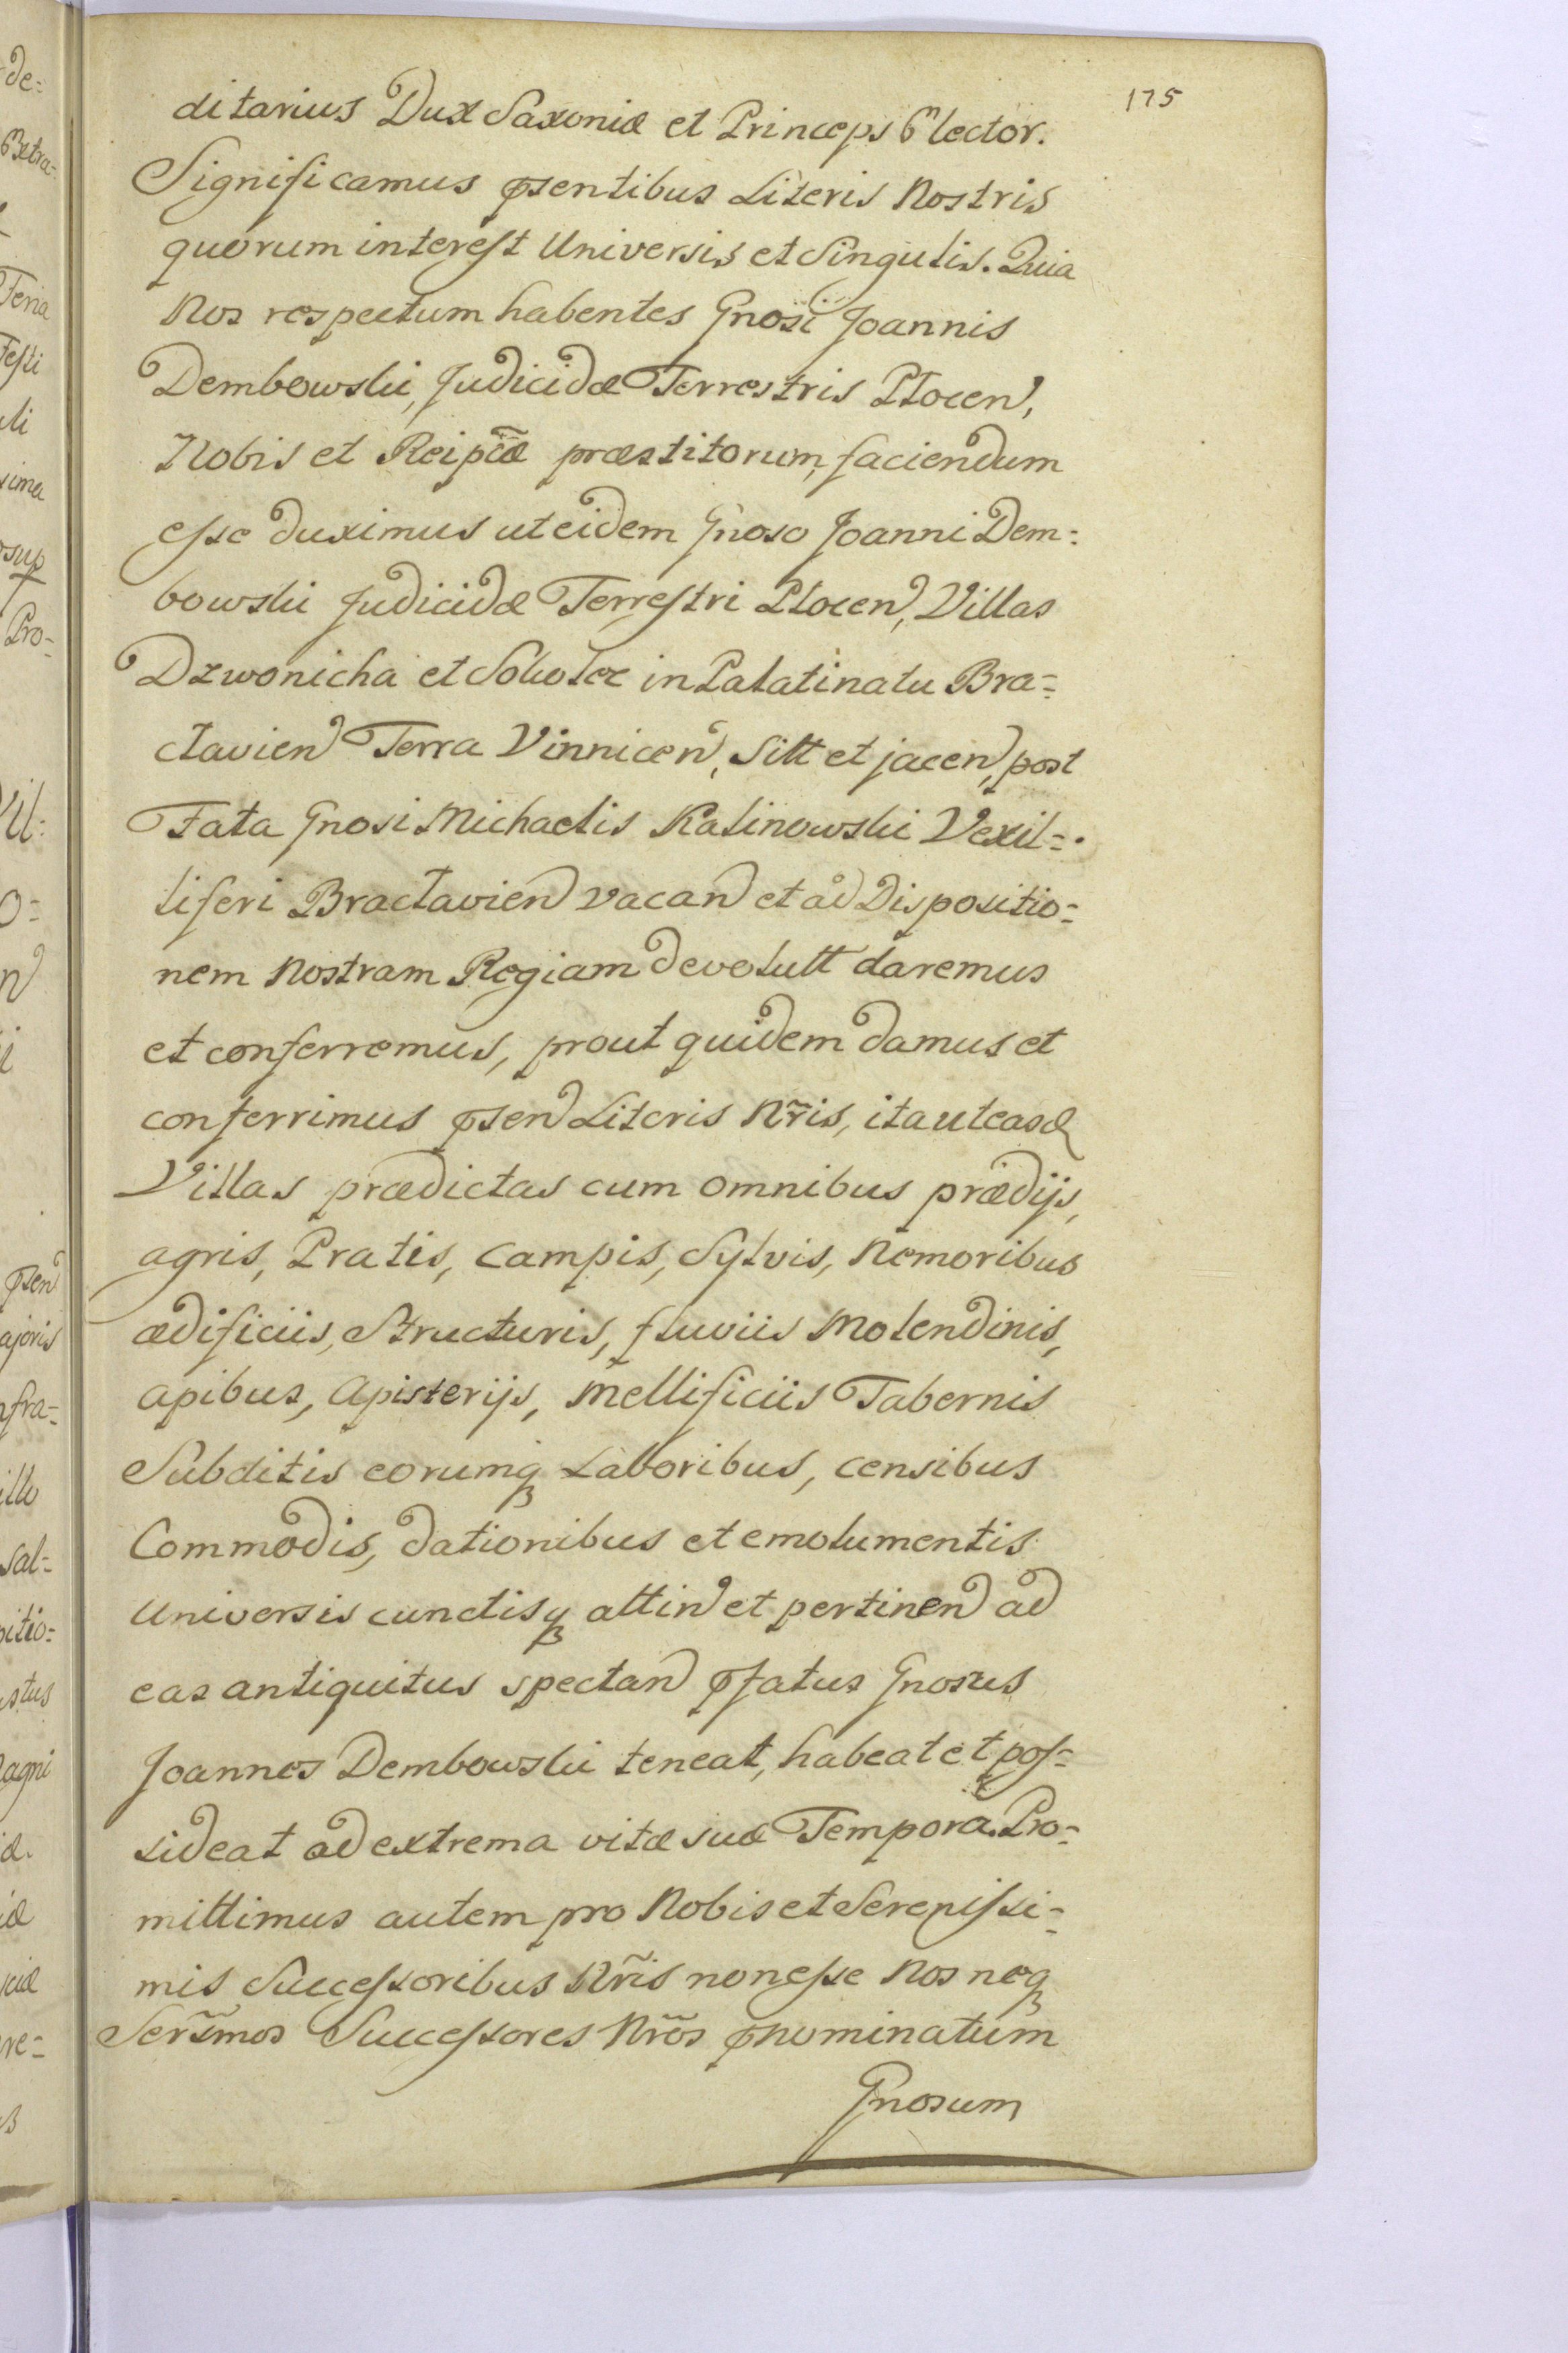 175
ditarius Dux Saxoniæ et Princeps Elector.
Significamus ꝓsentibus Literis Nostris
quorum interest Universis et Singulis. Quia
Nos respectum habentes Gnosi Joannis
Dembowski, Judicidæ Terrestris Plocen,
Nobis et Reipcæ præstitorum, faciendum
esse duximus ut eidem Gnoso Joanni Dem=
bowski Judicidæ Terrestri Plocen, Villas
Dzwonicha et in Palatinatu Bra=
clavien Terra Vinnicen, Sitt et jacen, post
Fata Gnosi Michaelis Kalinowski Vexil=
liferi Braclavien vacan et ad Dispositio=
nem Nostram Regiam devolutt daremus
et conferremus, prout quidem damus et
conferrimus ꝓsen Literis Nr̃is, ita ut easd
Villas prædictas cum omnibus prædijs,
agris, Pratis, Campis, Sylvis, Nemoribus
ædificiis, Structuris, fluviis Molendinis,
apibus, Apisterijs, Mellificiis Tabernis
Subditis eorumq Laboribus, censibus
Commodis, dationibus et emolumentis
Universis cunctisq attin et pertinen ad
eas antiquitus spectan ꝓfatus Gnosus
Joannes Dembowski teneat, habeat et pos=
sideat ad extrema vitæ suæ Tempora. Pro=
mittimus autem pro Nobis et Serenissi=
mis Successoribus Nr̃is non esse Nos neq
Ser̃smos Successores Nr̃os ꝓnominatum
Gnosum